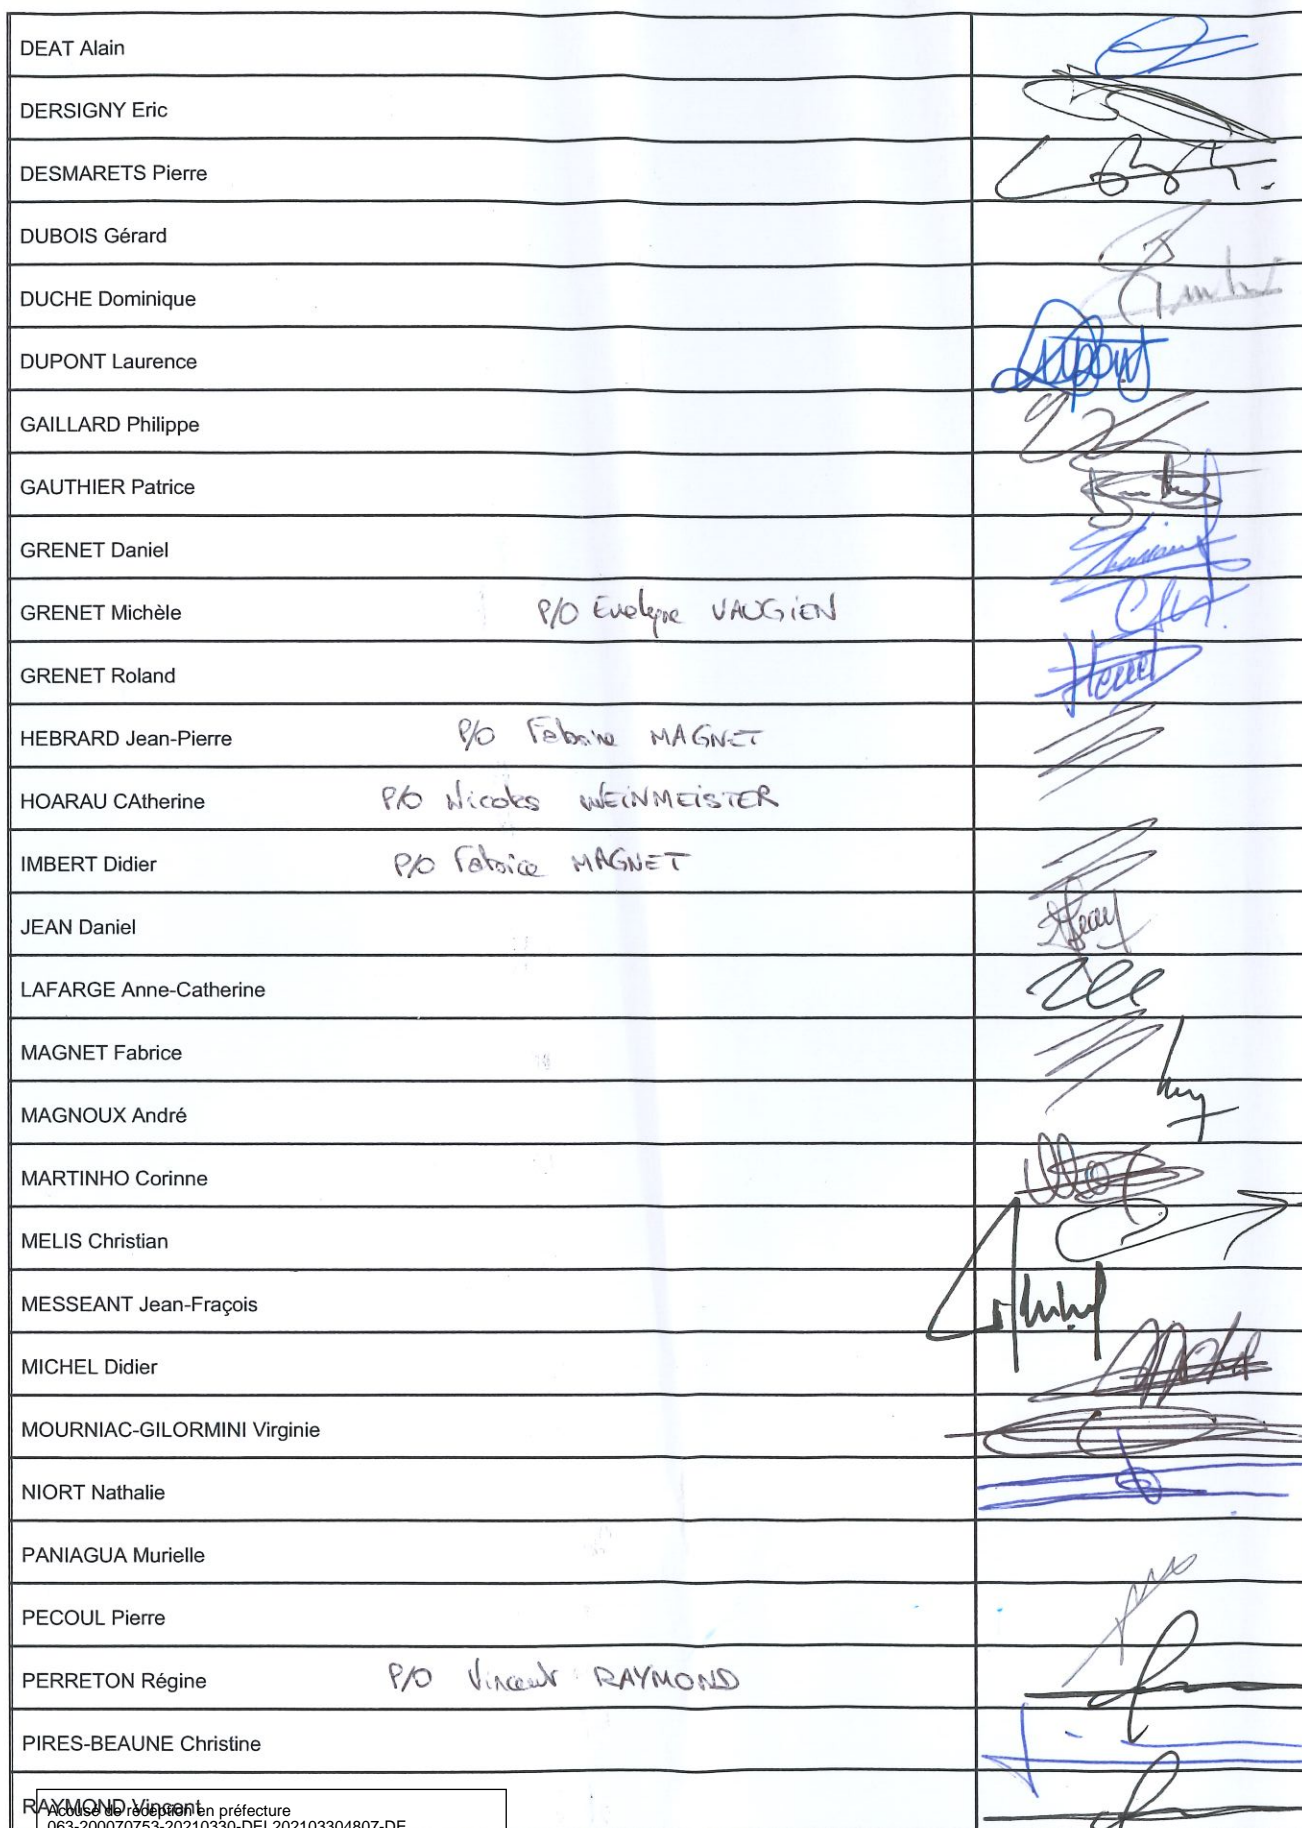 DEAT Alain
DERSIGNY Eric
DESMARETS Pierre
DUBOIS Gérard
DUCHE Dominique
DUPONT Laurence Dupont
GAILLARD Philippe
GAUTHIER Patrice
GRENET Daniel
GRENET Michèle P/O Evelyne VAUGIEN
GRENET Roland
HEBRARD Jean-Pierre P/O Fabrice MAGNET
HOARAU CAtherine P/O Nicolas WEINMEISTER
IMBERT Didier P/O Fabrice MAGNET
JEAN Daniel Jean
LAFARGE Anne-Catherine
MAGNET Fabrice
MAGNOUX André
MARTINHO Corinne
MELIS Christian
MESSEANT Jean-Fraçois
MICHEL Didier
MOURNIAC-GILORMINI Virginie
NIORT Nathalie
PANIAGUA Murielle
PECOUL Pierre
PERRETON Régine P/O Vincent RAYMOND
PIRES-BEAUNE Christine
RAYMOND Vincent
Accusé de réception en préfecture
063-200070753-20210330-DEL202103304807-DE